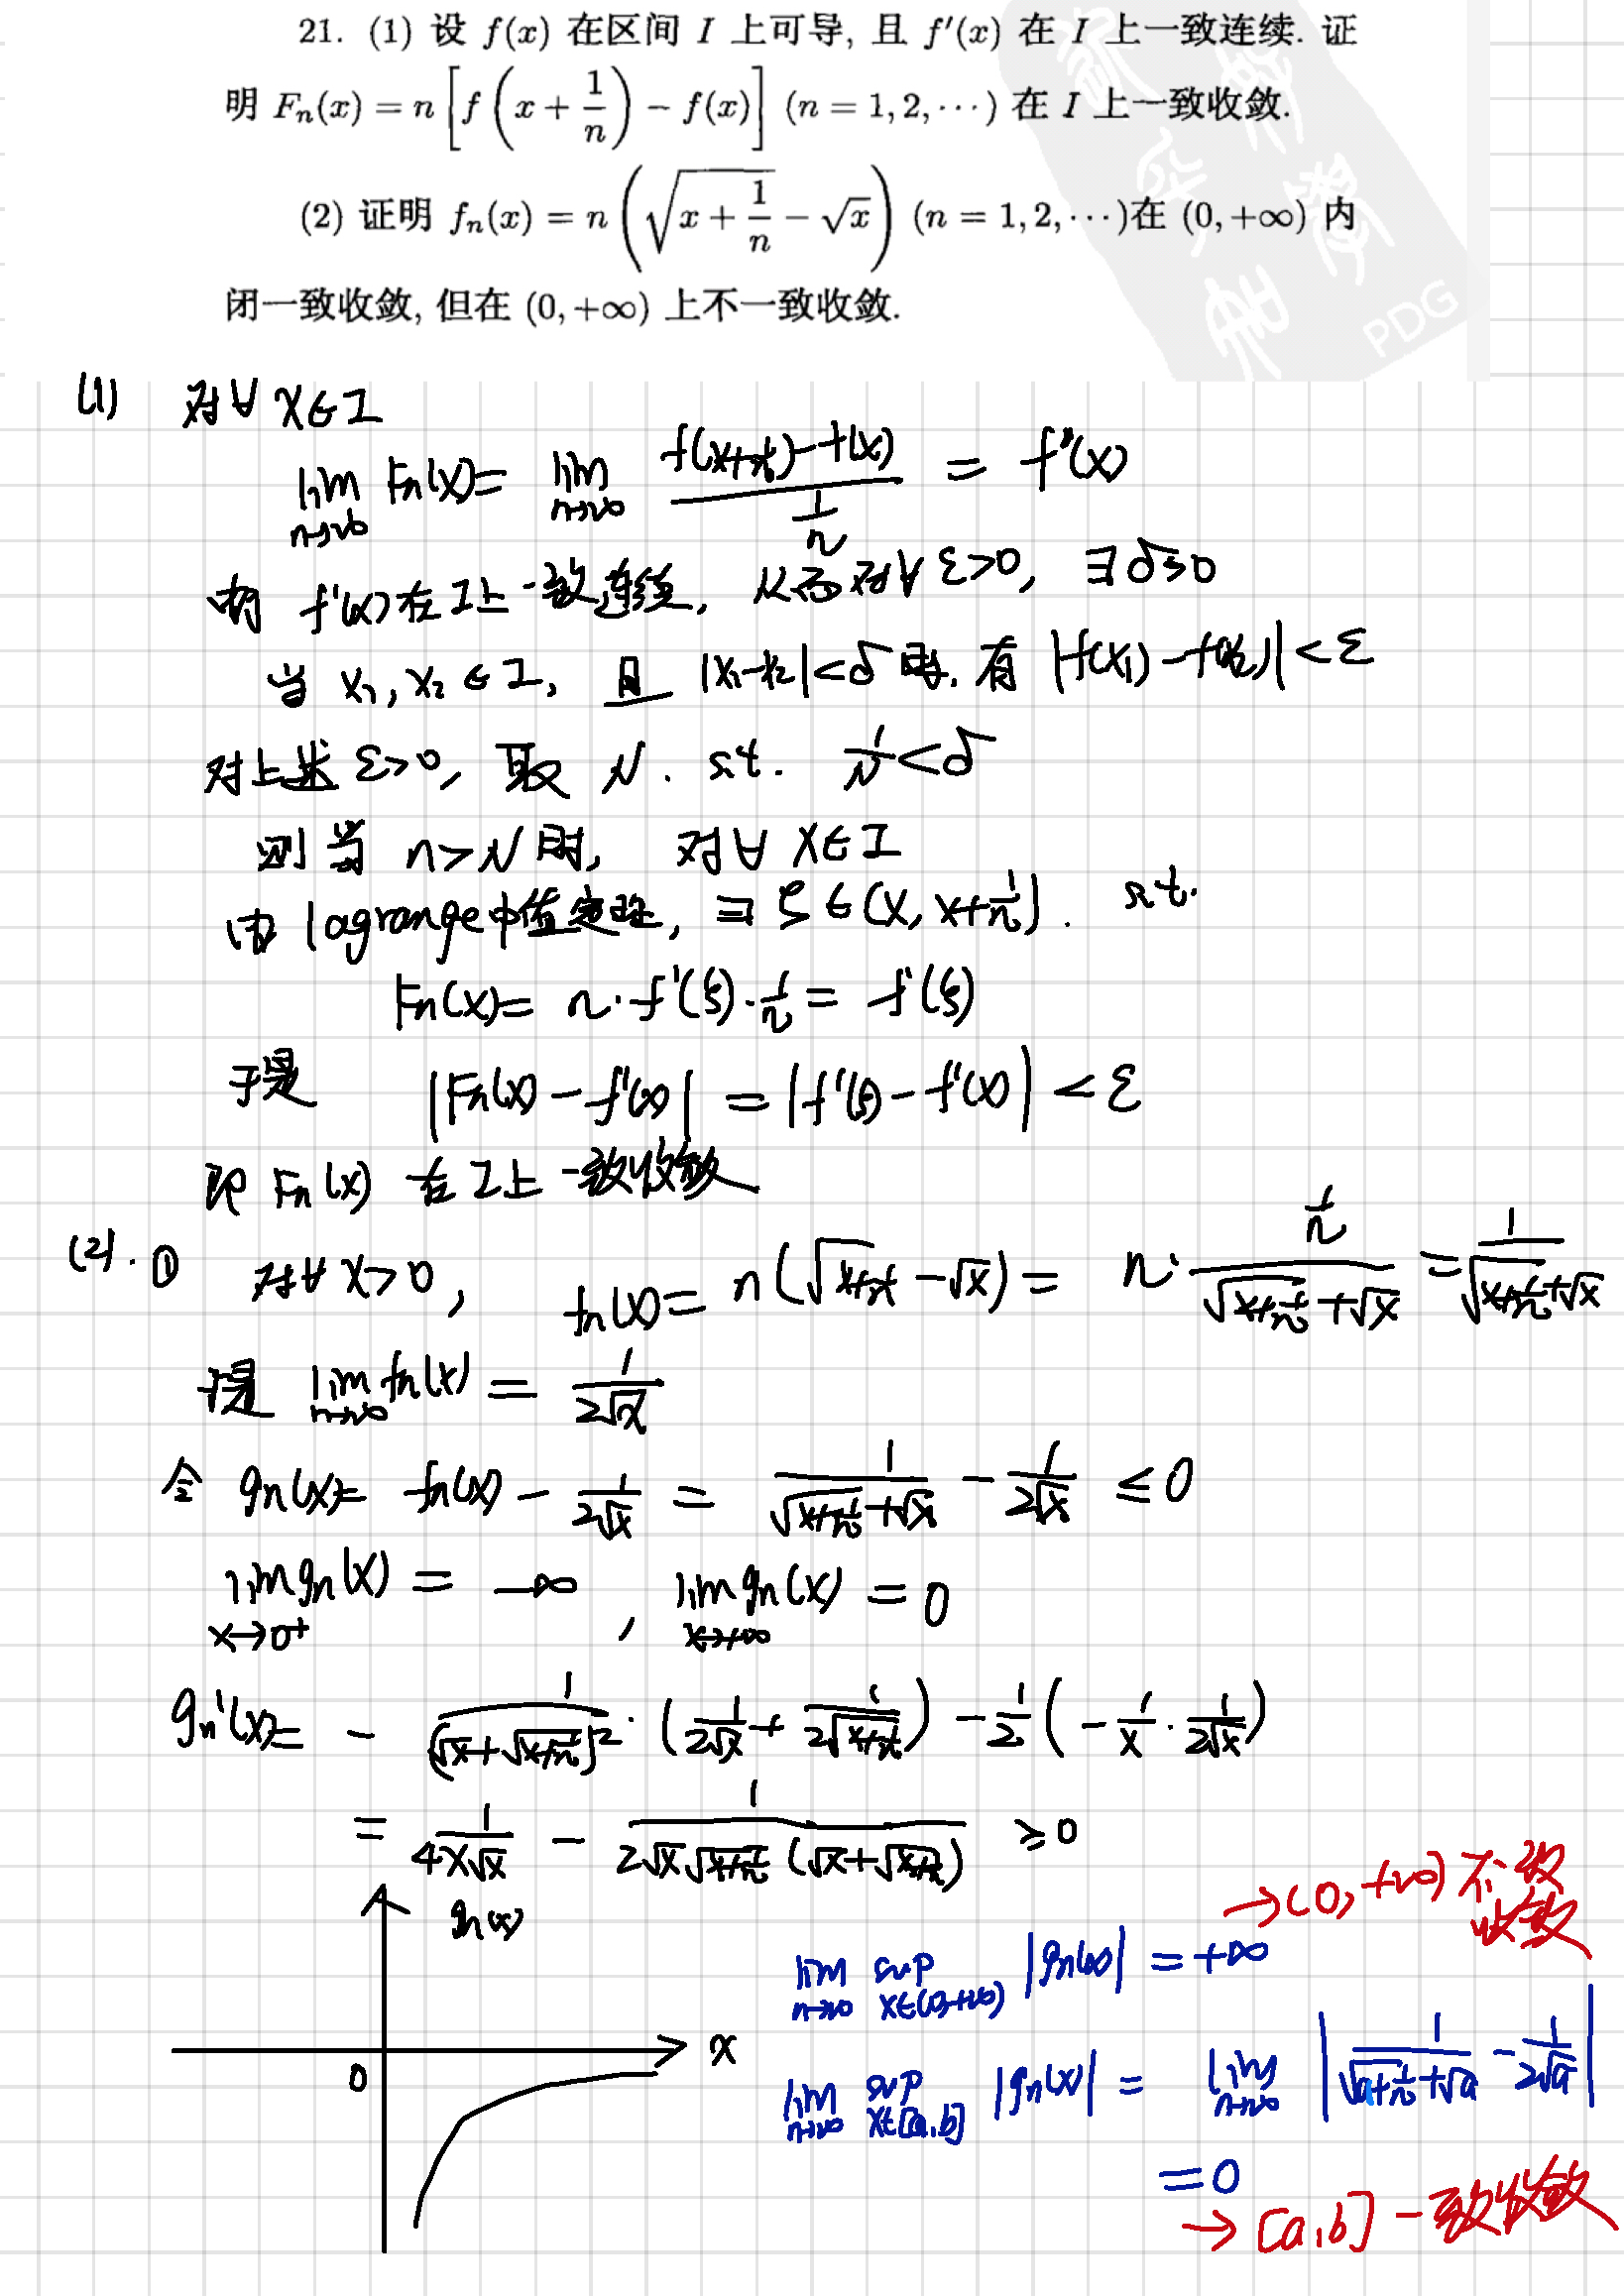 21. (1) 设 f(x) 在区间 I 上可导, 且 f′(x) 在 I 上一致连续. 证
明 Fn(x) = n[f(x + 1/n) − f(x)] (n = 1, 2, ⋯) 在 I 上一致收敛.
(2) 证明 fn(x) = n(√(x + 1/n) − √x) (n = 1, 2, ⋯)在 (0, +∞) 内
闭一致收敛, 但在 (0, +∞) 上不一致收敛.
PDG
(1) 对∀ x∈I
lim n→∞ Fn(x) = lim n→∞ (f(x+1/n) − f(x))/(1/n) = f′(x)
由 f′(x) 在 I 上一致连续, 从而对∀ ε>0, ∃ δ>0
当 x₁, x₂ ∈ I, 且 |x₁−x₂| < δ 时, 有 |f(x₁) − f(x₂)| < ε
对上述 ε>0, 取 N. s.t. 1/N < δ
则当 n>N 时, 对∀ x∈I
由 lagrange中值定理, ∃ ξ ∈ (x, x+1/n). s.t.
Fn(x) = n·f′(ξ)·1/n = f′(ξ)
于是 |Fn(x) − f′(x)| = |f′(ξ) − f′(x)| < ε
即 Fn(x) 在 I 上一致收敛
(2). ① 对∀ x>0, fn(x) = n(√(x+1/n) − √x) = n · (1/n)/(√(x+1/n) + √x) = 1/(√(x+1/n) + √x)
于是 lim n→∞ fn(x) = 1/(2√x)
令 gn(x) = fn(x) − 1/(2√x) = 1/(√(x+1/n) + √x) − 1/(2√x) ≤ 0
lim x→0⁺ gn(x) = −∞, lim x→+∞ gn(x) = 0
gn′(x) = − 1/(√x + √(x+1/n))² · (1/(2√x) + 1/(2√(x+1/n))) − 1/2 (− 1/x · 1/(2√x))
= 1/(4x√x) − 1/(2√x √(x+1/n) (√x + √(x+1/n))) ≥ 0
gn(x)
→ (0, +∞) 不一致
收敛
lim n→∞ sup x∈(0,+∞) |gn(x)| = +∞
x
0
lim n→∞ sup x∈[a,b] |gn(x)| = lim n→∞ |1/(√(a+1/n) + √a) − 1/(2√a)|
= 0
→ [a,b] 一致收敛